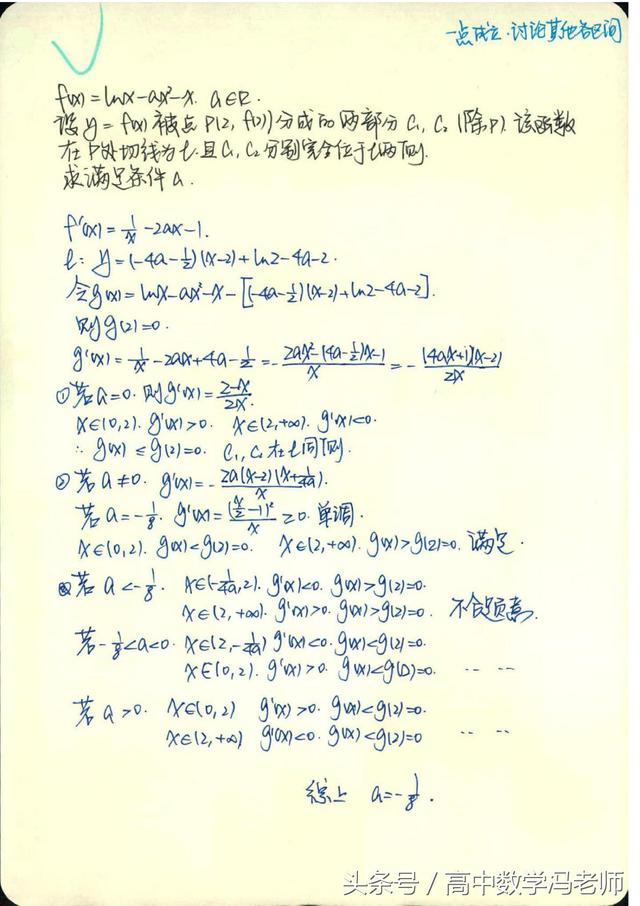 一点成立.讨论其他各区间
f(x)=lnx-ax²-x. a∈R.
设y=f(x)被点P(2,f(2))分成的两部分C₁,C₂(除P).该函数
在P处切线为l.且C₁,C₂分别完全位于l两侧.
求满足条件a.
f'(x)=1/x-2ax-1.
l: y=(-4a-1/2)(x-2)+ln2-4a-2.
令g(x)=lnx-ax²-x-[(-4a-1/2)(x-2)+ln2-4a-2].
则g(2)=0.
g'(x)=1/x-2ax+4a-1/2=-(2ax²-(4a-1/2)x-1)/x=-(4ax+1)(x-2)/2x
①若a=0.则g'(x)=(2-x)/2x.
x∈(0,2). g'(x)>0. x∈(2,+∞). g'(x)<0.
∴ g(x)≤g(2)=0. C₁,C₂在l同侧.
②若a≠0. g'(x)=-2a(x-2)(x+1/4a)/x.
若a=-1/8. g'(x)=(x/2-1)²/x≥0. 单调.
x∈(0,2). g(x)<g(2)=0. x∈(2,+∞). g(x)>g(2)=0. 满足.
若a<-1/8. x∈(-1/4a,2). g'(x)<0. g(x)>g(2)=0.
x∈(2,+∞). g'(x)>0. g(x)>g(2)=0. 不合题意.
若-1/8<a<0. x∈(2,-1/4a) g'(x)<0. g(x)<g(2)=0.
x∈(0,2). g'(x)>0. g(x)<g(2)=0. -- --
若a>0. x∈(0,2) g'(x)>0. g(x)<g(2)=0.
x∈(2,+∞) g'(x)<0. g(x)<g(2)=0 -- --
综上 a=-1/8.
头条号/高中数学冯老师